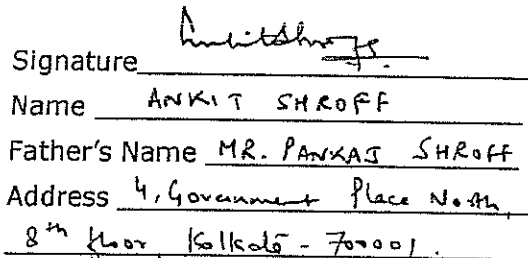 Signature Ankit Shroff
Name ANKIT SHROFF
Father's Name MR. PANKAJ SHROFF
Address 4, Government Place North,
8th floor Kolkata - 700001.